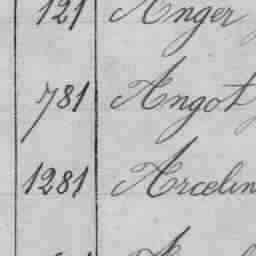 121 Anger
781 Angot
1281 Arcelin